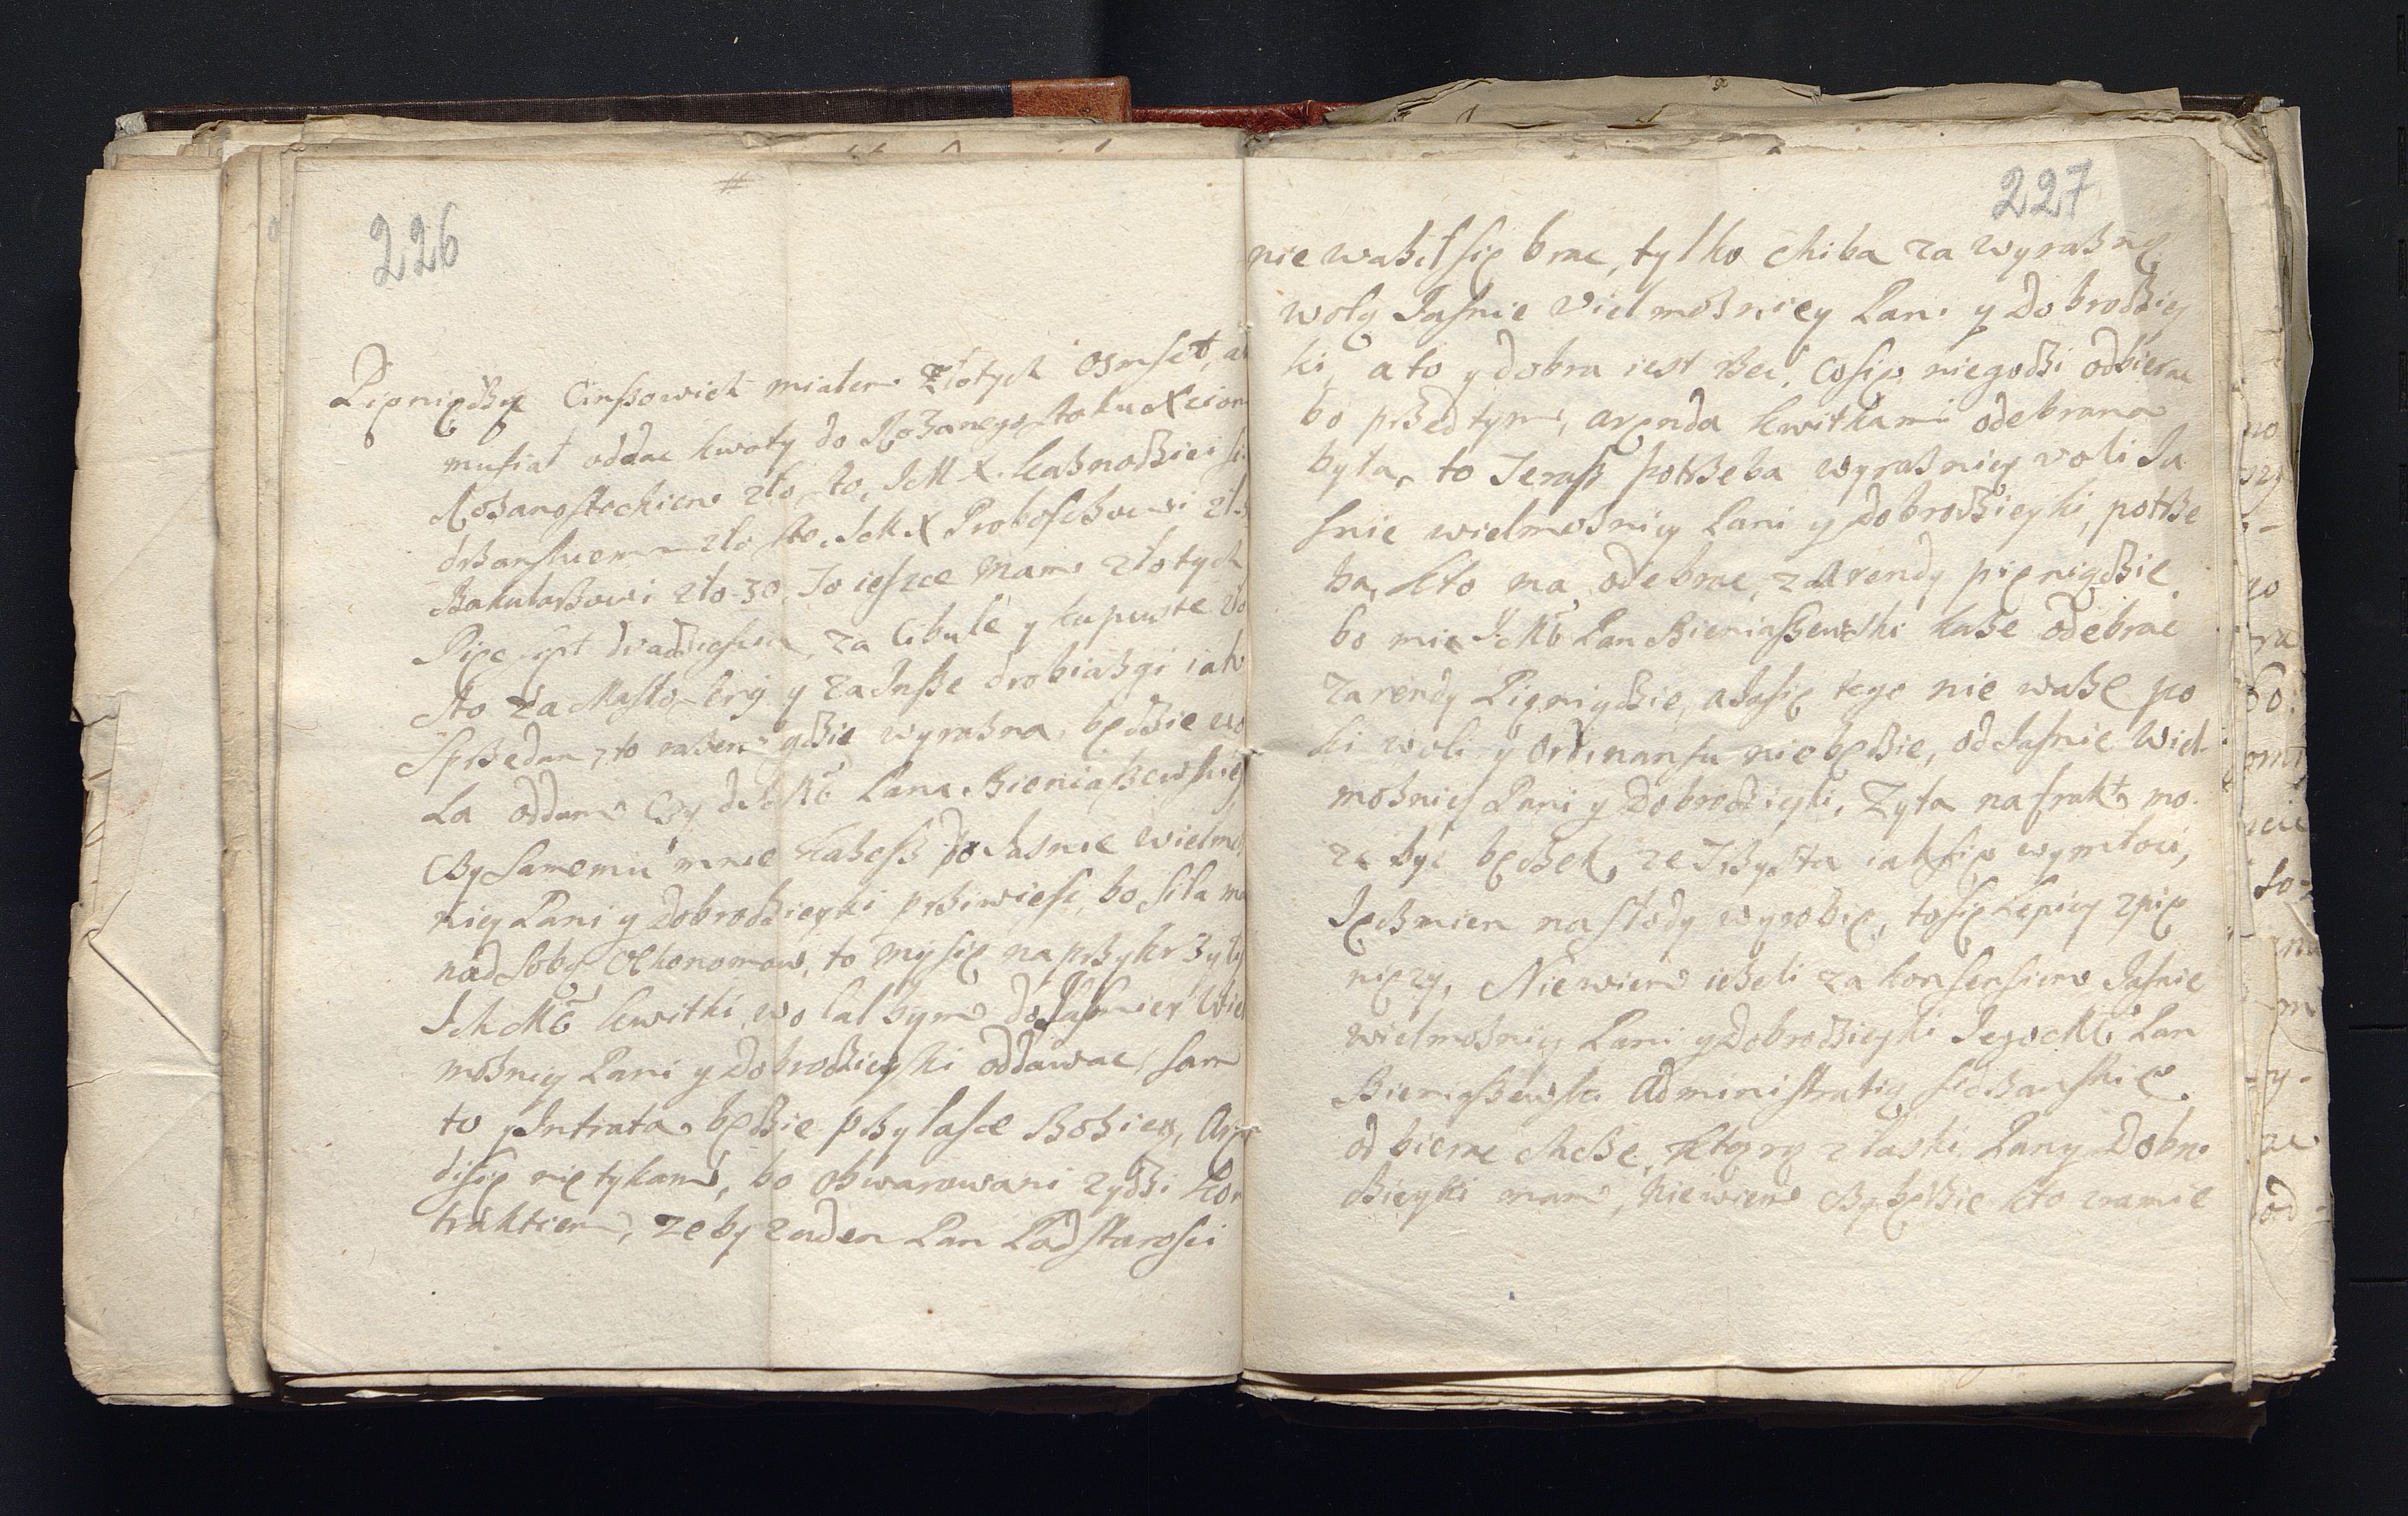 226
Pięnięḋzy Cinszowich miałem złotych osmset, a
musiał oddac kwoty do Rożanegostoku Xciom
Rożanostockiem zło sto, JeM X. Kaznodziei si
drzanskiem zło sto. JeM X Proboszczowi zł.
Bakularzowi zło 30. To ieszce mam złotych
Pięcset dwadziescia, za Cibule y kapuste zło
sto za Masło, sery y za Insze drobiazgi iak
sprzedam, to razem gdzie wyrazna, będzie wo
la oddam Czy dJeMć Pana Bieniaszewskieg
Czy samemu mnie każesz do Jasnie wielmo
niey Pani y dobrodzieyki prziwiesc, bo siła ma
nad sobą Oekonomow, to mysię naprzykrzyly
IchMć kwitki, wolalbym do Jasniey Wiel
możney Pani y Dobrodzieyki oddawac sam
to y Intrata będzie przy łasce Bożiey, Aręn
disię nie tykam, bo obwarowani zydzi kon
traktiem, zeby zaden Pan Podstarosci
227
nie ważił się brac, tylko chiba za wyrazną
wolą Jasnie Vielmożniey Pani y Dobrodziey
ki, a to y dobra iest rzec, cosię niegodzi odbierac
bo przedtym, aręnda kwitkami odebrana
była, to Terasz potrzeba wyrazniey voli Ja
snie wielmożniy Pani y dobrodzieyki, potrze
ba, kto ma odebrac, z Arendy pięniądzie
bo mie JeMć Pan Bieniaszewski każe odebrac
zarendy Pięniądzie, a Jasię tego nie ważę po
ki woli y Ordinansu nie będzie, od Jasnie Wiel-
możniey Pani y Dobrodzieyki, Zyta na frakt mo.
ze byc będzek, ze Trzysta iak się wymłoci,
Jęczmien na słody wyrobię, to się Lepiey zpię
nięzy, Niewiem ieżeli za konsensiem Jasnie
wielmożniey Pani y dobrodzieyki JegoMć Pan
Bieniaszewski Administratią sidzanskię
odbierac chcze, ktorą złaski Pany Dobro
dzieyki mam, Niewiem Czy będzie kto zramie